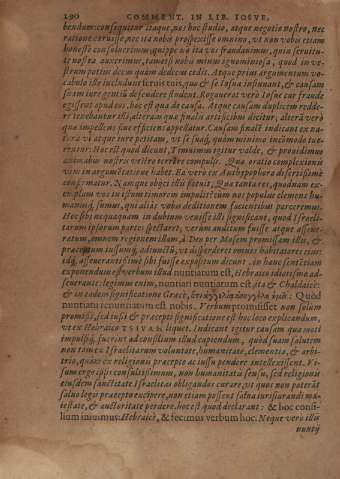 190 COMMENT. IN LIB. IOSVE,
bendum: consequitur itaque, nec hoc studio, atque negotio nostro, nec
ratione ceruisse, nec ita nobis prospexisse omnino, vt non vobis etiam
honeste consuluerimus, quippe vt ita vos fraudauimus, quia seruitu-
te nostra auxerimus, tametsi nobis minus ignominiosa, quod in ve-
strum potius decus quàm dedecus cedit. Atque primi argumentum vo-
cabulo iste includunt
suam iure gentiū descendere student. Repauerat verò Iosue cur fraude
egissent apud eos, hoc est qua de causa. Atque causam duplicem redde-
re videbantur illi, alteram quæ finalis artificibus dicitur, alterā verò
quæ impellens siue efficiens appellatur. Causam finalē indicant ex na-
tura vi atque iure petitam, vt se suaq́; quàm minimo incōmodo tue-
rentur. Hoc est quod dicunt, Timuimus igitur valde, & prouidimus
animabus nostris vestro terrore compulsi. Quæ oratio complexionis
vim in argumētatione habet. Ea verò ex Anthypophora disertissimè
confirmatur. Namque obijci illis potuit, Quæ tantæ res, quodnam ex-
emplum vos in istum timorem impulit? cùm nos populus clemens hu-
manusq́; simus, qui alijs vobis deditionem facientibus parceremus.
Hoc sibi nequaquam in dubium venisse illi significant, quod Israeli-
tarum ipsorum partes spectaret; verùm auditum fuisse atque asseue-
ratum, omnem regionem illam à Deo per Mosem promissam illis, &
præceptum insuper adiunctū, vt disperderent omnes habitatores eius:
idq́; asseuerantissimè sibi fuisse expositum dicunt. in hanc sentētiam
exponendum est verbum illud nuntiatum est, Hebraico idiotismo ad-
seuerante. legimus enim, nuntiari nuntiatum est, ita & Chaldaicè:
& in eadem significatione Græcè, Quòd
nuntiatū renuntiatum est nobis. Verbum promisisset non solùm
promissi, sed iussi & præcepti significatione est hoc loco explicandum,
vt ex Hebraico TSIVAH liquet. Indicant igitur causam quæ moti
impulsiq́; fuerint ad consilium illud capiendum, quòd suam salutem
non tam ex Israelitarum voluntate, humanitate, clementia, & arbi-
trio, quàm ex religionis præcepto ac iussu pendere intellexissent. Vi-
sum ergo ipsis consultissimum, non humanitatis sensu, sed religionis
eiusdem sanctitate Israelitas obligandos curare, vt quos non poterāt
saluo legis præcepto excipere, non etiam possent salua iurisiurandi ma-
iestate, & auctoritate perdere. hoc est quod declarant: & hoc consi-
lium iniuimus: Hebraicè, & fecimus verbum hoc. Neque verò illis
nuntij